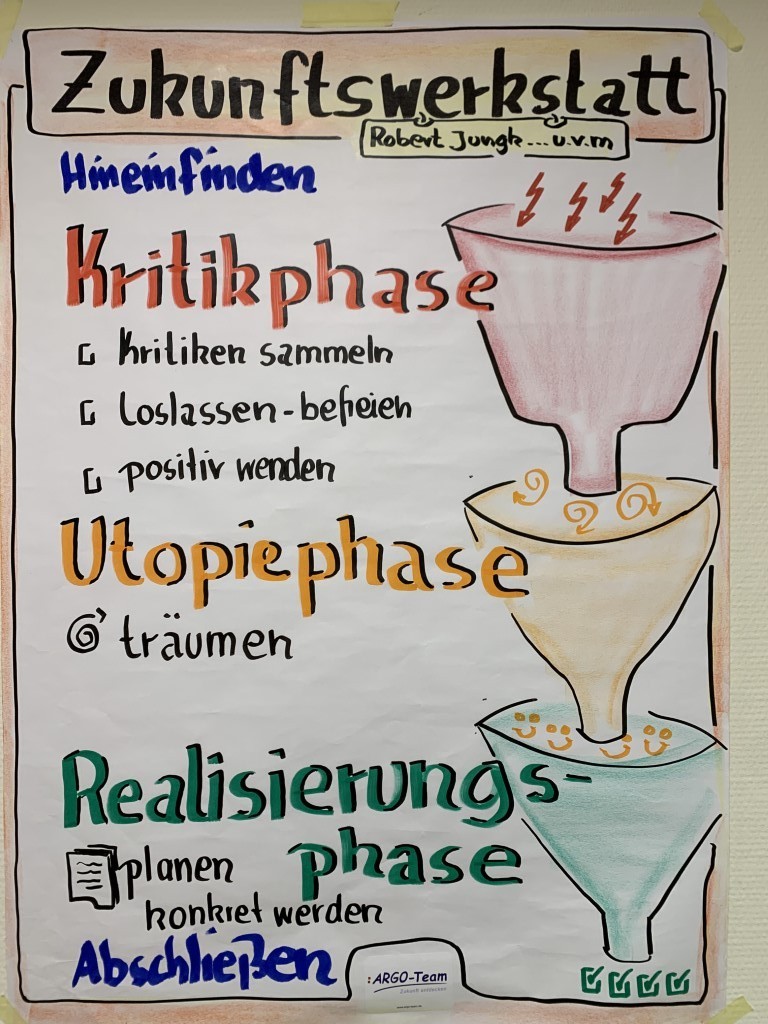 Zukunftswerkstatt
Robert Jungk...u.v.m
Hineinfinden
Kritikphase
Kritiken sammeln
Loslassen-befreien
positiv wenden
Utopiephase
träumen
Realisierungs-
phase
planen
konkret werden
Abschließen
:ARGO-Team
Zukunft entdecken